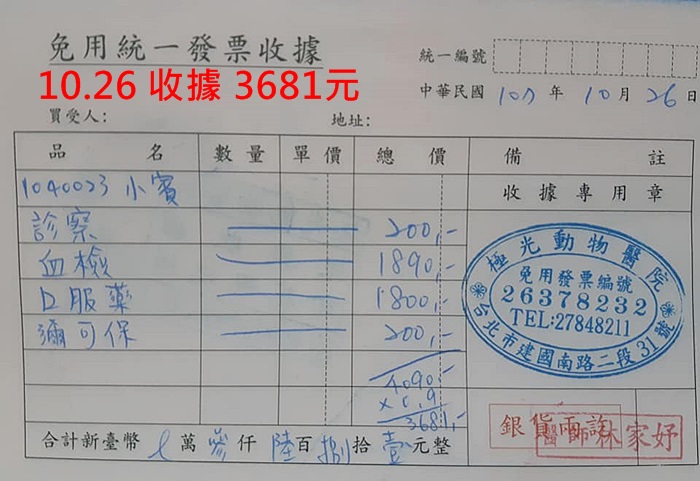 免用統一發票收據
統一編號
10.26 收據 3681元
中華民國 107 年 10 月 26 日
買受人： 地址：
品名 數量 單價 總價 備註
收據專用章
1040023 小賓
診察 200,-
血檢 1890,-
口服藥 1800,-
彌可保 200,-
4090,-
x 0.9
3681,-
極光動物醫院
免用發票編號
26378232
TEL:27848211
台北市建國南路二段31號
銀貨兩訖
醫師林家妤
合計新臺幣 萬 參 仟 陸 百 捌 拾 壹 元整